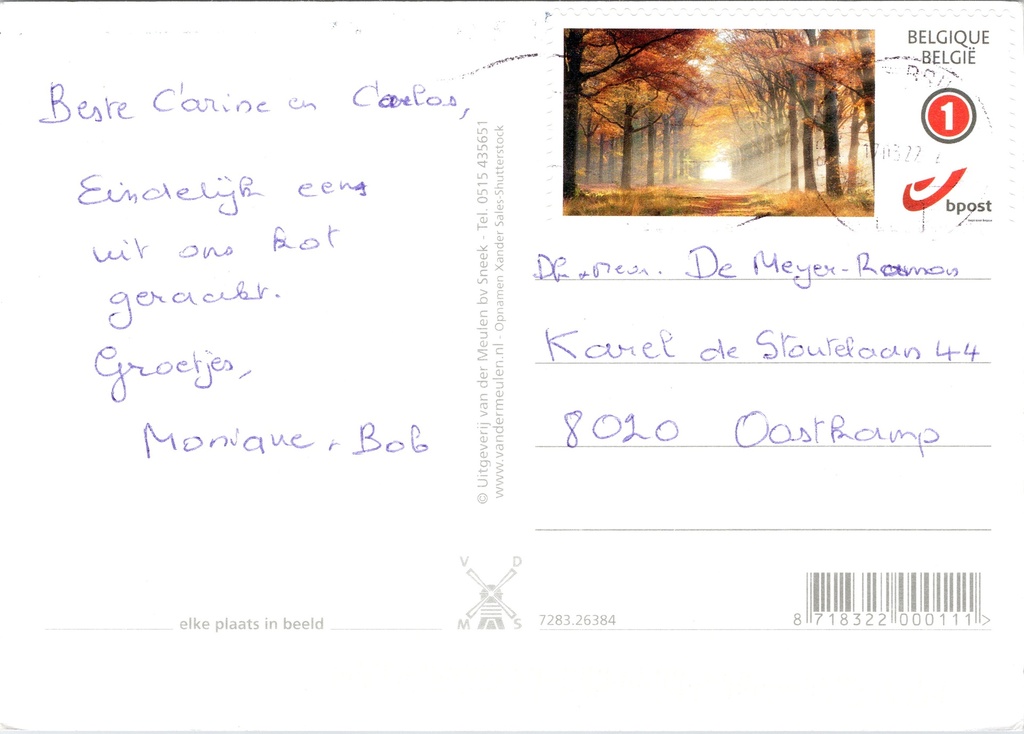 Beste Carine en Carlos,
Eindelijk eens
uit ons kot
geraakt.
Groetjes,
Monique + Bob
© Uitgeverij van der Meulen bv Sneek - Tel. 0515 435651
www.vandermeulen.nl - Opnamen Xander Sales-Shutterstock
BELGIQUE
BELGIË
1
bpost
17 03 22
Dhr + Mevr. De Meyer-Ramon
Karel de Stoutelaan 44
8020 Oostkamp
V D
M S
elke plaats in beeld
7283.26384
8 718322 000111 >